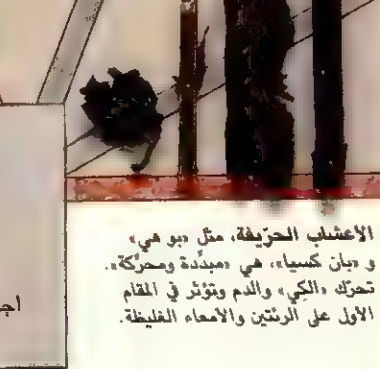 الأعشاب الحرّيفة، مثل «بو هي»
و «بان كسيا»، هي «مبدّدة ومحرّكة».
تحرّك «الكي» والدم وتؤثر في المقام
الأول على الرئتين والأمعاء الغليظة.